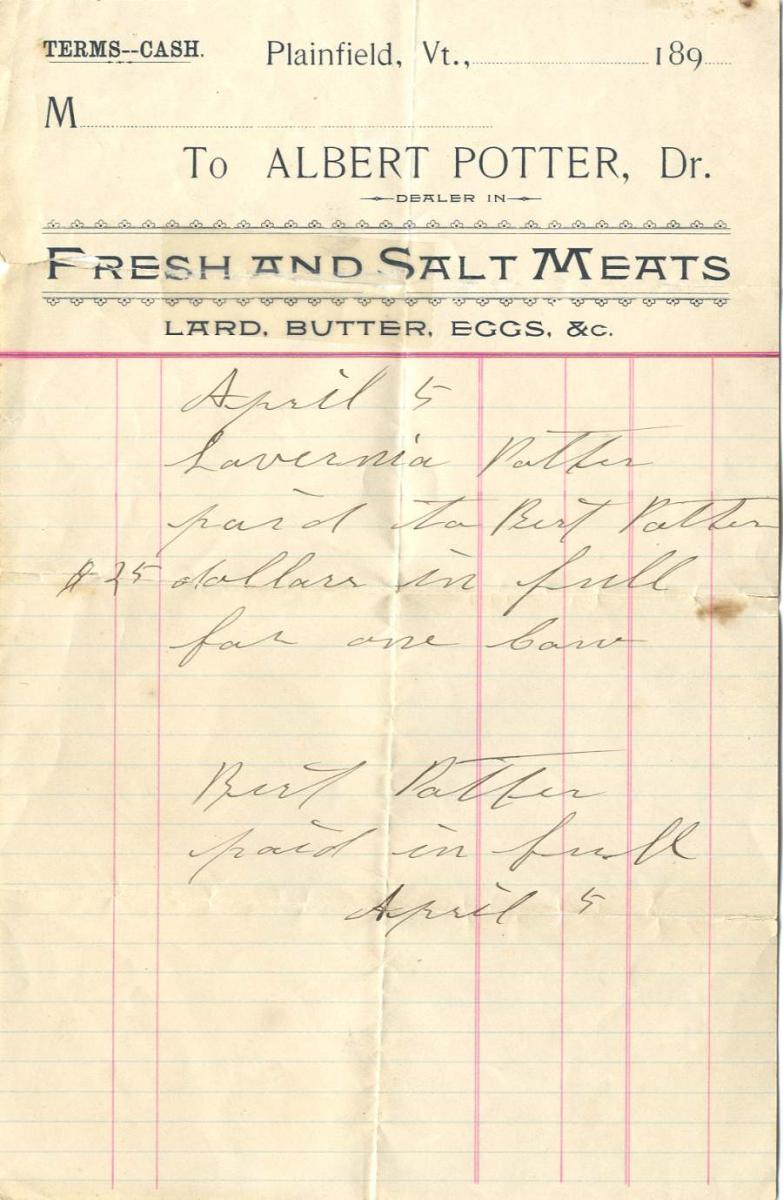 TERMS--CASH. Plainfield, Vt., 189
M
To ALBERT POTTER, Dr.
DEALER IN
FRESH AND SALT MEATS
LARD, BUTTER, EGGS, &c.
April 5
Lavernia Potter
paid to Bert Potter
$25 dollars in full
for one Cow
Bert Potter
paid in full
April 5